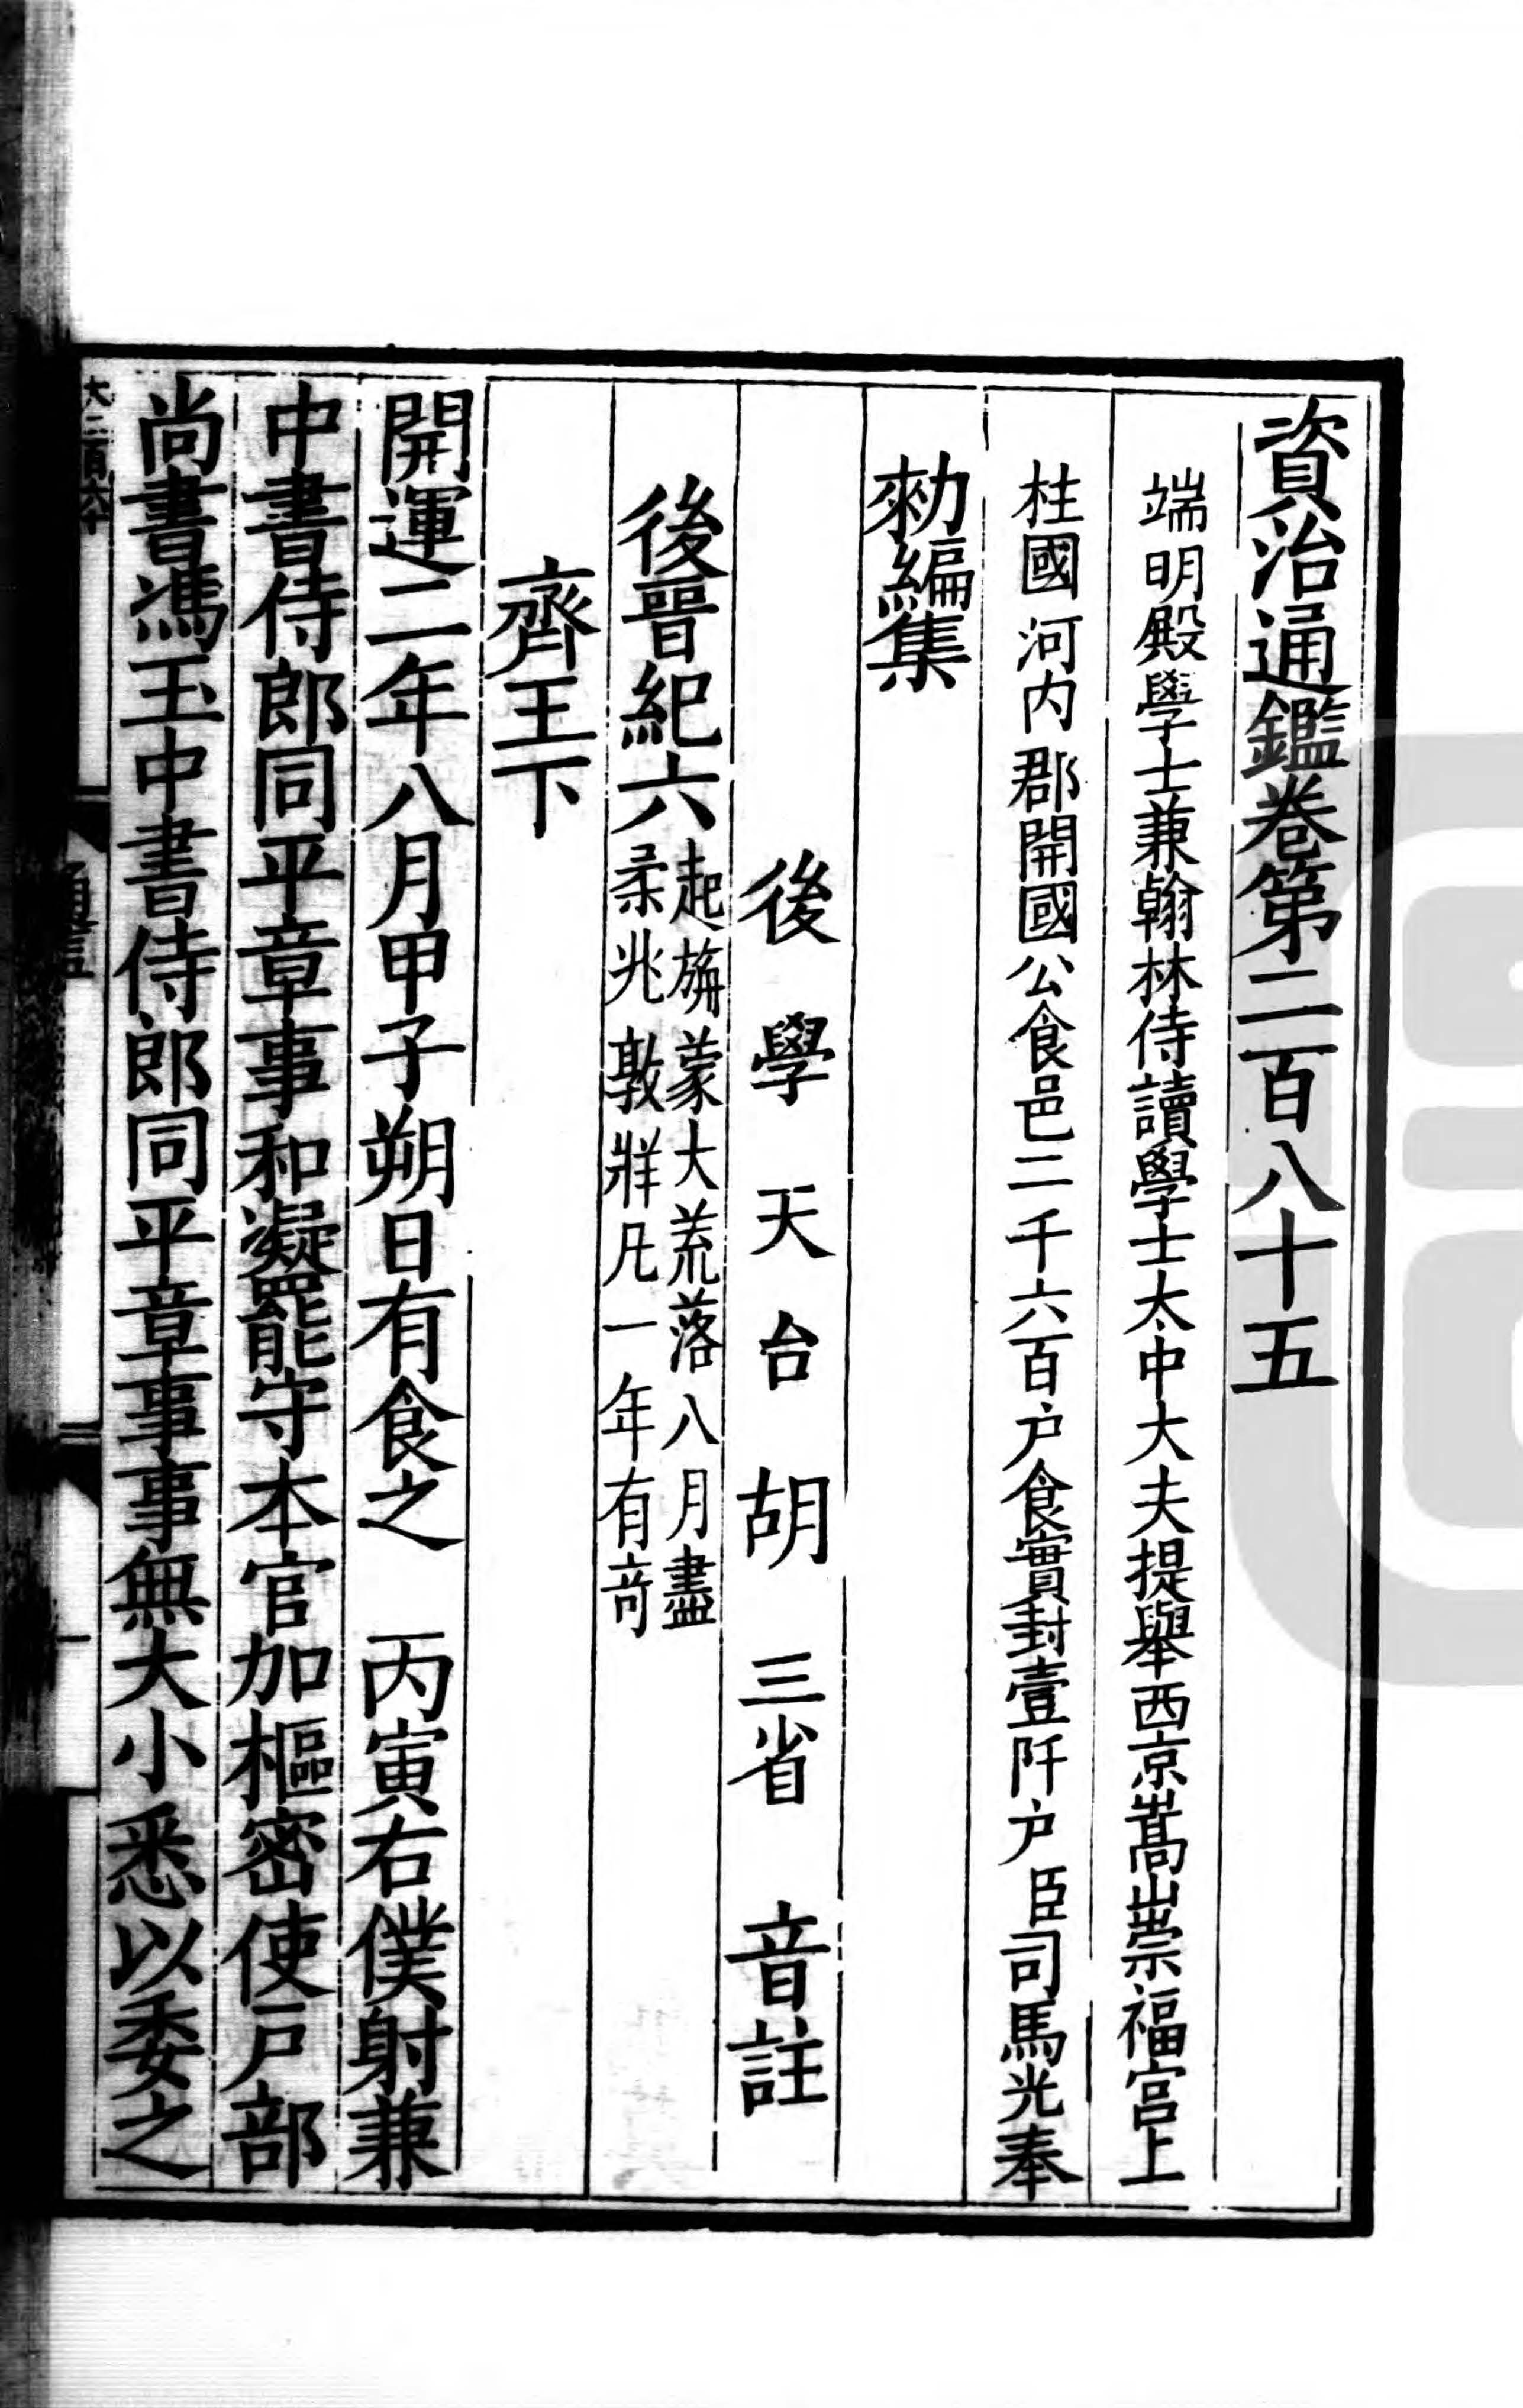 資治通鑑卷第二百八十五
端明殿學士兼翰林侍讀學士太中大夫提舉西京嵩山崇福宮上
柱國河内郡開國公食邑二千六百户食實封壹阡户臣司馬光奉
勑編集
後學天台胡三省音註
後晉紀六起旃蒙大荒落八月盡
柔兆敦牂凡一年有竒
齊王下
開運二年八月甲子朔日有食之 丙寅右僕射兼
中書侍郎同平章事和凝罷守本官加樞密使户部
尚書馮玉中書侍郎同平章事事無大小悉以委之